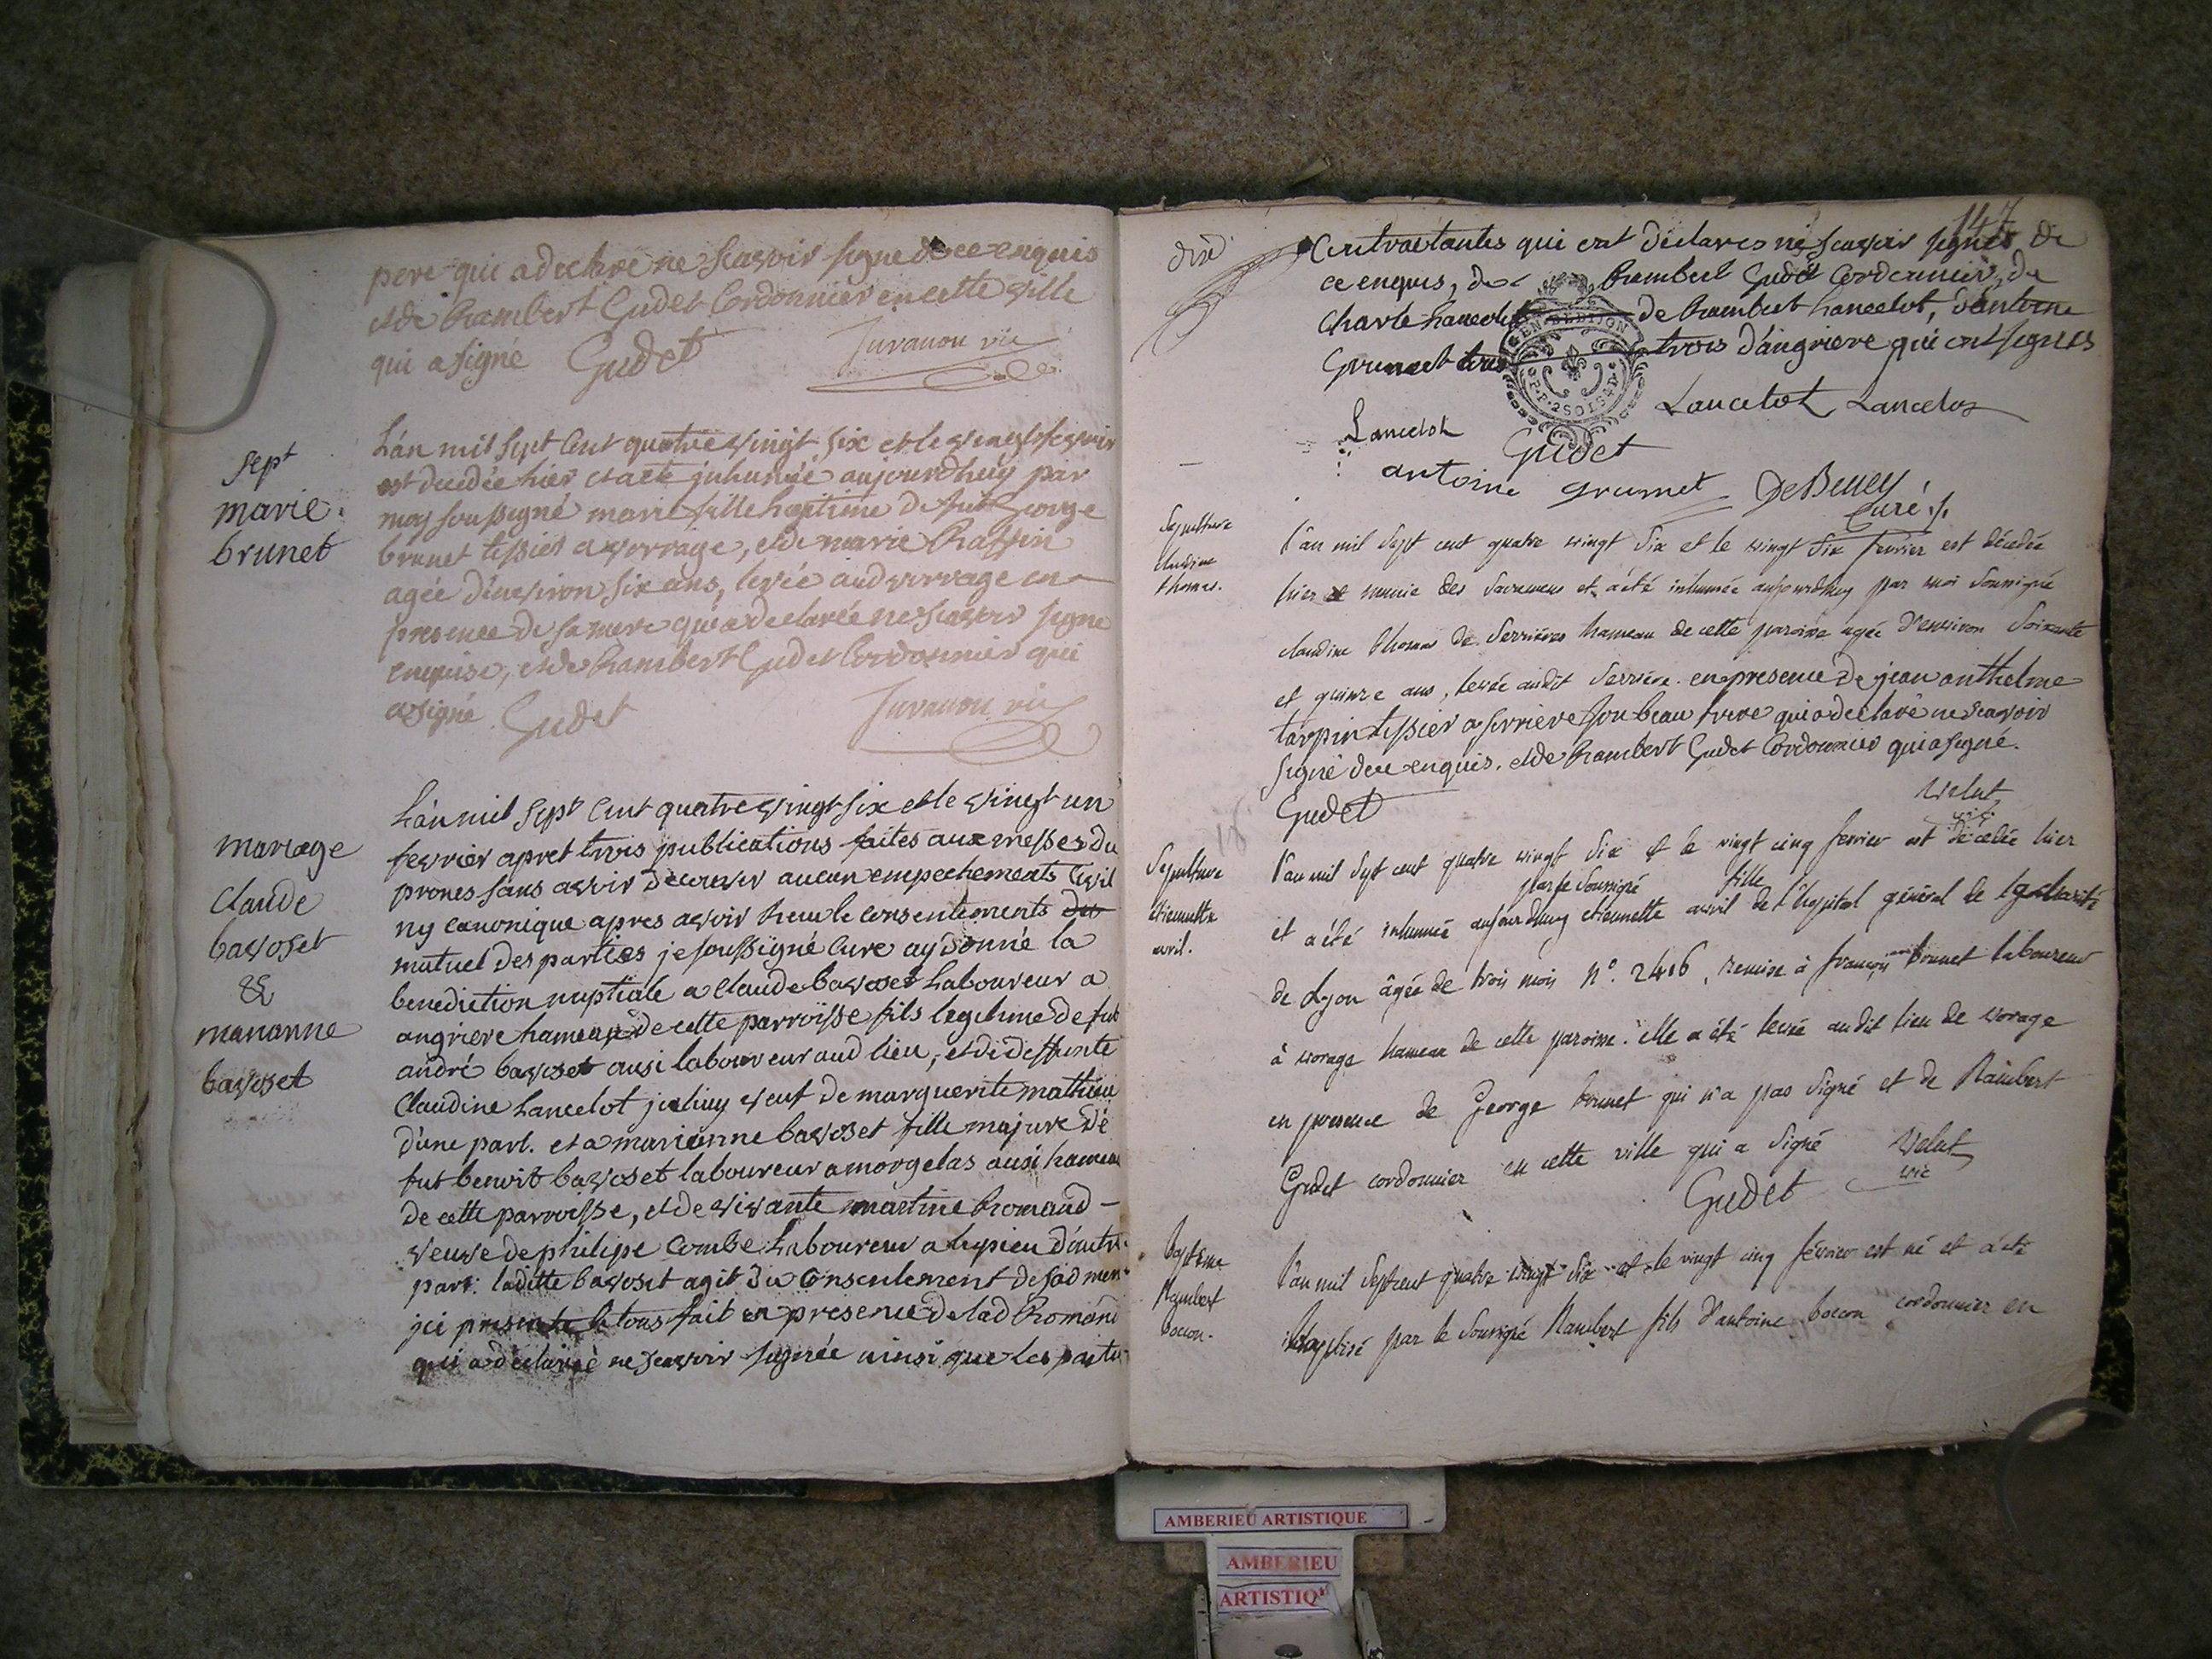 pere qui a declaré ne scavoir signe de ce enquis
et de Rambert Gudet Cordonnier en cette ville
qui a signé Gudet Juvanon vic
sept
marie
brunet
L'an mil sept Cent quatre vingt six et le vingt fevrier
est decedée hier et a eté inhumée aujourdhuy par
moy soussigné marie fille legitime de fut George
brunet tissier a vorrage, et de marie Raffin
agée d'environ six ans, levée aud vorrage en
presence de sa mere qui a declarée ne scavoir signe
enquise, et de Rambert Gudet Cordonnier qui
a signé Gudet Juvanon vic
mariage
Claude
bavoset
&
marianne
bavoset
L'an mil sept Cent quatre vingt six et le vingt un
fevrier apret trois publications faites aux messes du
prones sans avoir decouvir aucun empechements Civil
ny canonique apres avoir heu le consentements du
mutuel des parties je soussigné Cure ay donné la
benediction nuptiale a Claude bavoset Laboureur a
angriere hameau de cette parroisse fils legitime de fut
andré bavoset ausi laboureur aud lieu, et de deffunte
Claudine Lancelot veuf de marguerite mathieu
d'une part. et a marianne bavoset fille majure de
fut benoit bavoset laboureur a morgelas ausi hameau
de cette parroisse, et de vivante martine Romand
veuve de philipe Combe Laboureur a d'autre
part. laditte bavoset agit du Consentement de sad mere
ici presente le tous fait en presence de lad Romand
qui a declaré ne scavoir signée ainsi que les partie
147
Contractantes qui ont déclarés ne scavoir signer de
ce enquis, de Rambert Gudet Cordonnier, de
Charle Lancelot de Rambert Lancelot, d'antoine
Grumet trois d'angriere qui ont signés
EN. DE DIJON
Lancelot Lancelot
Lancelot
Gudet
antoine grumet De Belley
Curé
Sepulture
claudine
thomas.
l'an mil sept cent quatre vingt six et le vingt six fevrier est décédée
hier munie des sacremens et a été inhumée aujourdhuy par moi soussigné
claudine thomas de Serrières hameau de cette paroisse agée d'environ soixante
et quinze ans, levée audit Serriere. en presence de jean anthelme
tarpin tissier a serriere son beau frere qui a declaré ne scavoir
signé de ce enquis. et de Rambert Gudet Cordonnier qui a signé.
Gudet Velut
vic
Sepulture
étiennette
avril.
l'an mil sept cent quatre vingt six et le vingt cinq fevrier est décédée hier
par le soussigné fille
et a été inhumée aujourdhuy étiennette avril de l'hopital général de la charité
de Lyon âgée de trois mois n°. 2416, remise à françois brunet laboureur
à vorage hameau de cette paroisse. elle a été levée audit lieu de vorage
en presence de George brunet qui n'a pas signé et de Raimbert
Gudet cordonnier en cette ville qui a signé Velut
Gudet vic
baptême
Rambert
bocon.
l'an mil sept cent quatre vingt six et le vingt cinq février est né et a été
baptisé par le soussigné Rambert fils d'antoine bocon cordonnier en
AMBERIEU ARTISTIQUE
AMBERIEU
ARTISTIQ